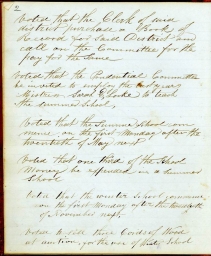 Voted that the Clerk of said
district purchase a Book of
Record for said District and
call on the Committee for the
pay for the Same
Voted that the Prudential Committee
be invited to employ
Mistress Sarah Locke to teach
the summer School,
Voted that the Summer School com
mence on the first Monday after the
twentieth of May next
Voted that one third of the School
Money be expended in a Summer
School
Voted that the winter School commence
on the first Monday after the
of November next
Voted to sell three Cords of Wood
at auction, for the use of School